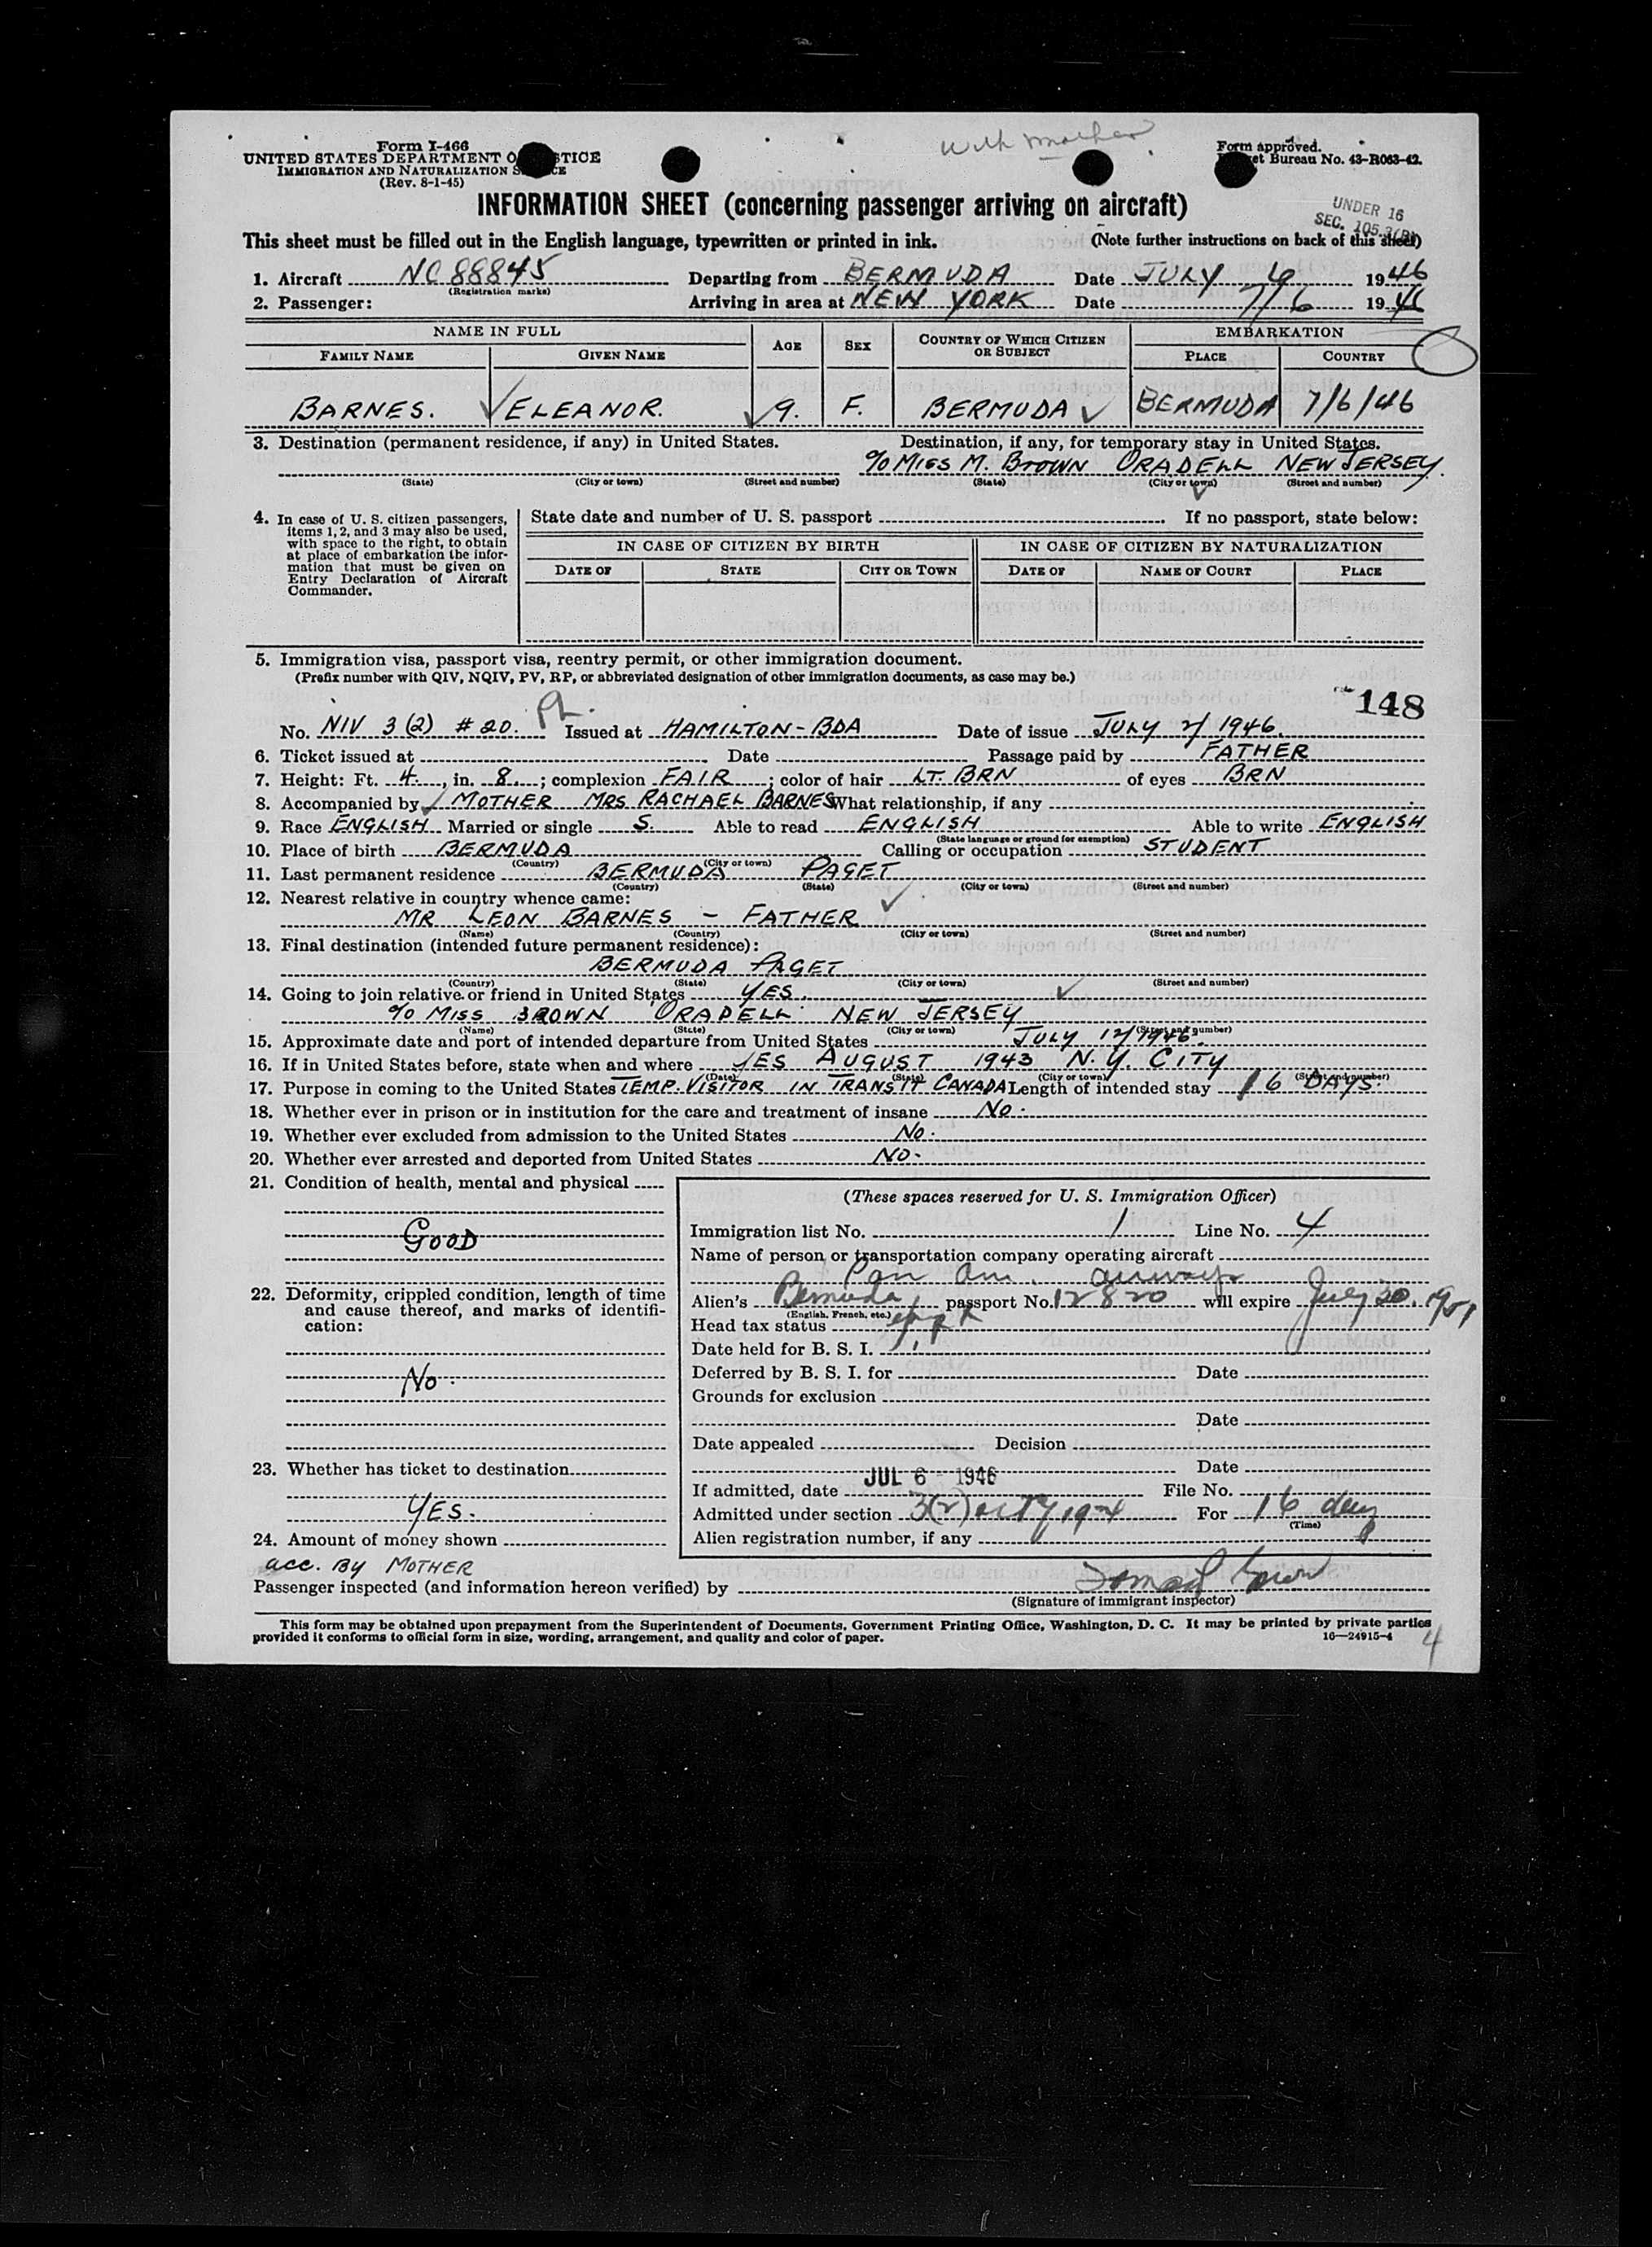 With mother
Form I-466
UNITED STATES DEPARTMENT O STICE
IMMIGRATION AND NATURALIZATION S CE
(Rev. 8-1-45)
Form approved.
et Bureau No. 43-R063-42.
INFORMATION SHEET (concerning passenger arriving on aircraft)
UNDER 16
SEC. 105.3(B)
This sheet must be filled out in the English language, typewritten or printed in ink. (Note further instructions on back of this sheet)
1. Aircraft NC 88845 Departing from BERMUDA Date JULY 6 1946
(Registration marks)
2. Passenger: Arriving in area at NEW YORK Date 7/6 1946
NAME IN FULL AGE SEX COUNTRY OF WHICH CITIZEN OR SUBJECT EMBARKATION
FAMILY NAME GIVEN NAME PLACE COUNTRY
BARNES. ELEANOR. 9. F. BERMUDA BERMUDA 7/6/46
3. Destination (permanent residence, if any) in United States. Destination, if any, for temporary stay in United States.
% MISS M. BROWN ORADELL NEW JERSEY.
(State) (City or town) (Street and number) (State) (City or town) (Street and number)
4. In case of U. S. citizen passengers, items 1, 2, and 3 may also be used, with space to the right, to obtain at place of embarkation the information that must be given on Entry Declaration of Aircraft Commander.
State date and number of U. S. passport If no passport, state below:
IN CASE OF CITIZEN BY BIRTH IN CASE OF CITIZEN BY NATURALIZATION
DATE OF STATE CITY OR TOWN DATE OF NAME OF COURT PLACE
5. Immigration visa, passport visa, reentry permit, or other immigration document.
(Prefix number with QIV, NQIV, PV, RP, or abbreviated designation of other immigration documents, as case may be.)
148
No. NIV 3 (2) # 20. Issued at HAMILTON - BDA Date of issue JULY 2/ 1946.
6. Ticket issued at Date Passage paid by FATHER
7. Height: Ft. 4, in. 8; complexion FAIR; color of hair LT. BRN of eyes BRN
8. Accompanied by MOTHER MRS RACHAEL BARNES What relationship, if any
9. Race ENGLISH Married or single S. Able to read ENGLISH Able to write ENGLISH
(State language or ground for exemption)
10. Place of birth BERMUDA Calling or occupation STUDENT
(Country) (City or town)
11. Last permanent residence BERMUDA PAGET
(Country) (State) (City or town) (Street and number)
12. Nearest relative in country whence came:
MR LEON BARNES - FATHER
(Name) (Country) (City or town) (Street and number)
13. Final destination (intended future permanent residence):
BERMUDA PAGET
(Country) (State) (City or town) (Street and number)
14. Going to join relative or friend in United States YES.
% MISS BROWN ORADELL NEW JERSEY
(Name) (State) (City or town) (Street and number)
15. Approximate date and port of intended departure from United States JULY 12/1946.
16. If in United States before, state when and where YES AUGUST 1943 N.Y. CITY
(Date) (State) (City or town) (Street and number)
17. Purpose in coming to the United States TEMP. VISITOR IN TRANSIT CANADA Length of intended stay 16 DAYS.
18. Whether ever in prison or in institution for the care and treatment of insane NO.
19. Whether ever excluded from admission to the United States NO.
20. Whether ever arrested and deported from United States NO.
21. Condition of health, mental and physical
GOOD
22. Deformity, crippled condition, length of time and cause thereof, and marks of identification:
NO.
23. Whether has ticket to destination
YES.
24. Amount of money shown
acc. BY MOTHER
(These spaces reserved for U. S. Immigration Officer)
Immigration list No. 1 Line No. 4
Name of person or transportation company operating aircraft
Pan Am. airways
Alien's Bermuda passport No. 12820 will expire July 30, 1951
(English, French, etc.)
Head tax status
Date held for B. S. I.
Deferred by B. S. I. for Date
Grounds for exclusion
Date
Date appealed Decision
Date
If admitted, date JUL 6 - 1946 File No.
Admitted under section 3(2) act of 1924 For 16 days
(Time)
Alien registration number, if any
Passenger inspected (and information hereon verified) by
(Signature of immigrant inspector)
This form may be obtained upon prepayment from the Superintendent of Documents, Government Printing Office, Washington, D. C. It may be printed by private parties
provided it conforms to official form in size, wording, arrangement, and quality and color of paper. 16—24915-4
4